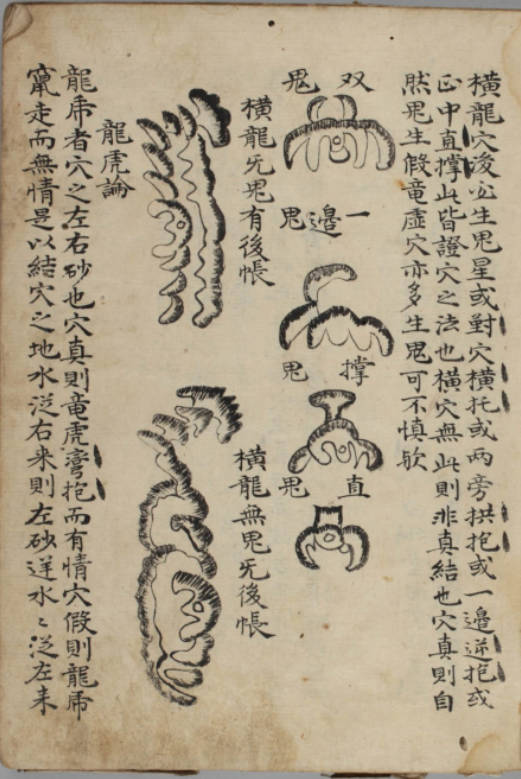 橫龍穴後必生鬼星或對穴橫托或两旁拱抱或一邉逆抱或
正中直撑此皆證穴之法也橫穴無此則非真結也穴真則自
然鬼生假竜虛穴亦多生鬼可不慎欤
双鬼
一邉鬼
撑鬼
直鬼
橫龍旡鬼有後帳
橫龍無鬼旡後帳
龍虎論
龍虎者穴之左右砂也穴真則竜虎湾抱而有情穴假則龍虎
竄走而無情是以結穴之地水泛右来則左砂逆水〻泛左来